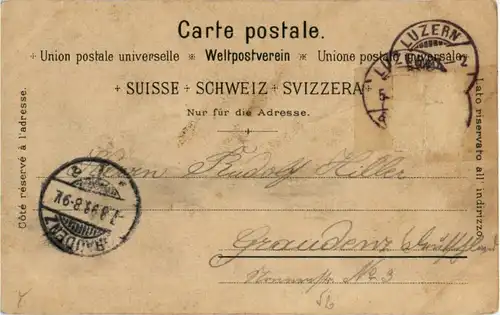 Carte postale.
Union postale universelle ※ Weltpostverein ※ Unione postale universale
+ SUISSE + SCHWEIZ + SVIZZERA +
Nur für die Adresse.
Côté réservé à l'adresse.
Lato riservato all' indirizzo.
LUZERN
GRAUDENZ
7.8.98.8-9V.
Herrn Rudolf Hiller
Graudenz Deutschland
No 3